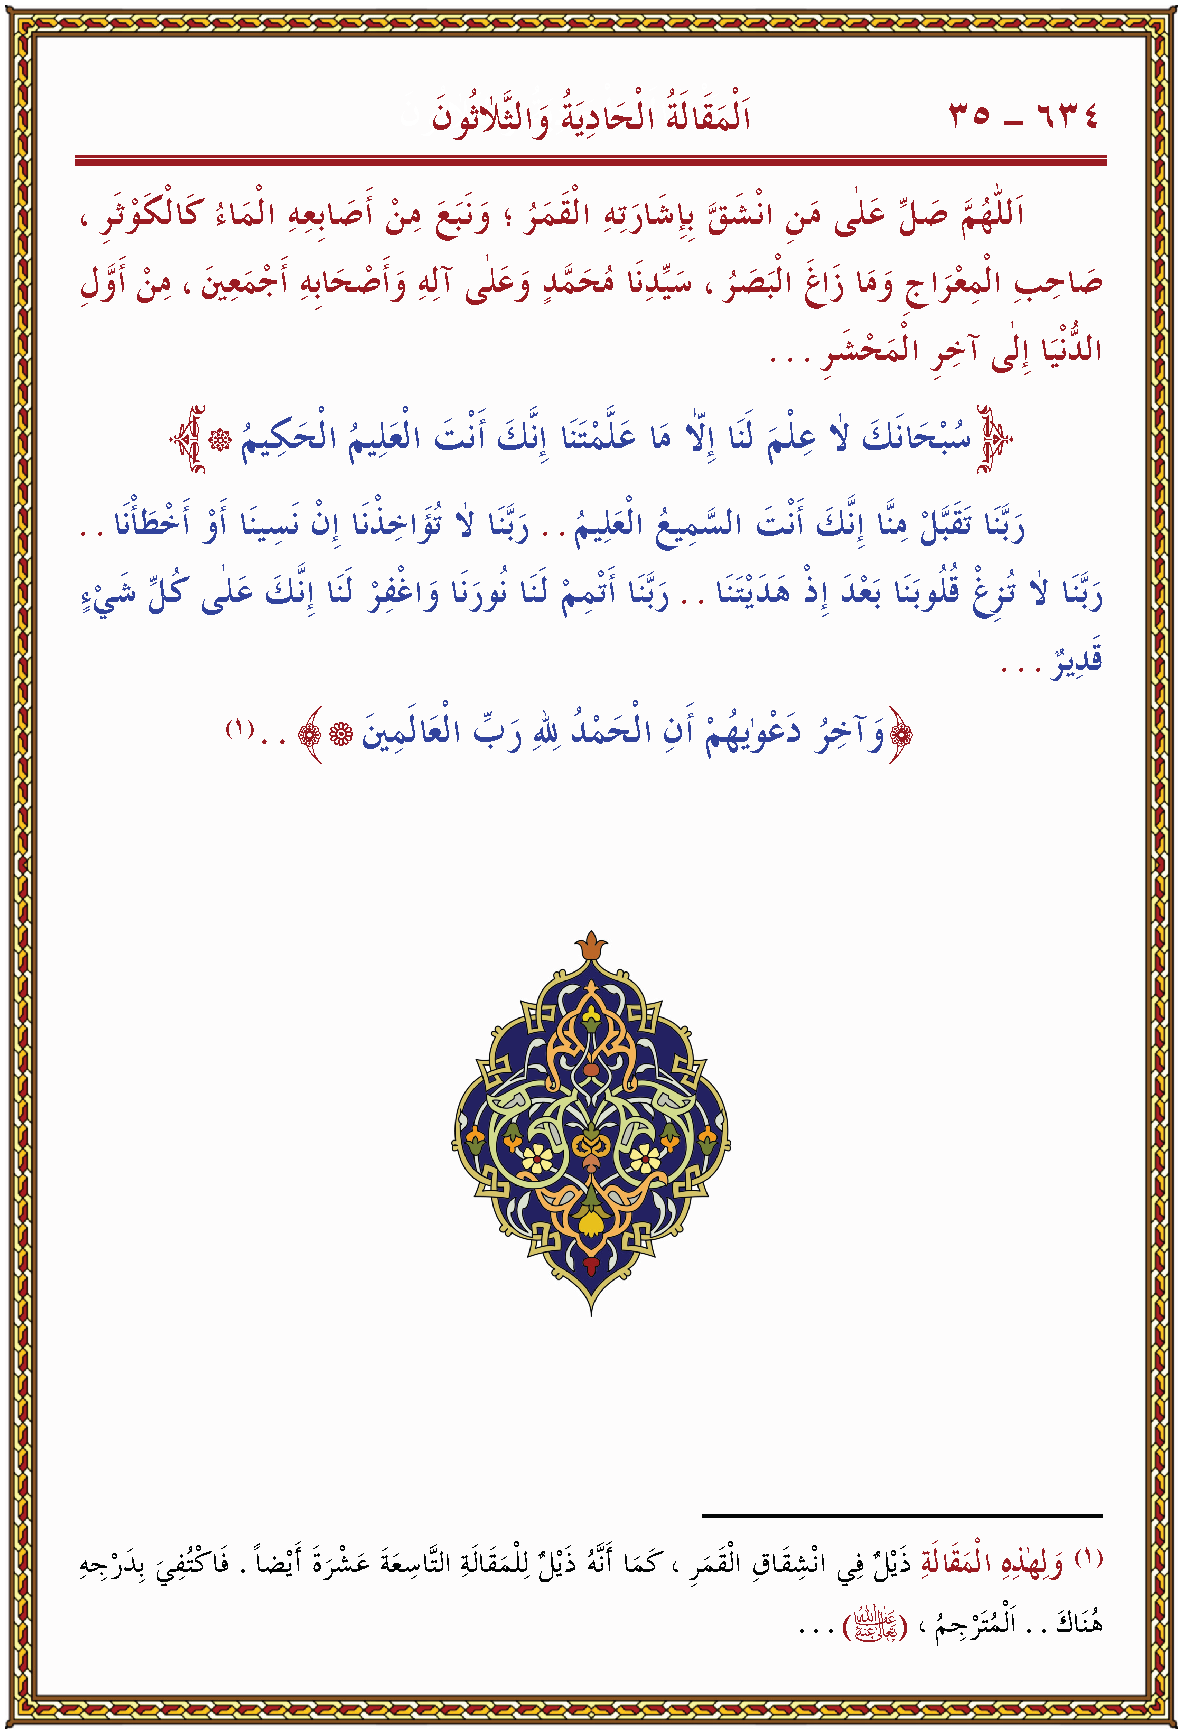 ٦٣٤ ـ ٣٥ اَلْمَقَالَةُ الْحَادِيَةُ وَالثَّلاَثُونَ
اَللّٰهُمَّ صَلِّ عَلٰى مَنِ انْشَقَّ بِإِشَارَتِهِ الْقَمَرُ ؛ وَنَبَعَ مِنْ أَصَابِعِهِ الْمَاءُ كَالْكَوْثَرِ ،
صَاحِبِ الْمِعْرَاجِ وَمَا زَاغَ الْبَصَرُ ، سَيِّدِنَا مُحَمَّدٍ وَعَلٰى آلِهِ وَأَصْحَابِهِ أَجْمَعِينَ ، مِنْ أَوَّلِ
الدُّنْيَا إِلٰى آخِرِ الْمَحْشَرِ . . .
﴿سُبْحَانَكَ لاَ عِلْمَ لَنَا إِلاَّ مَا عَلَّمْتَنَا إِنَّكَ أَنْتَ الْعَلِيمُ الْحَكِيمُ ۞﴾
رَبَّنَا تَقَبَّلْ مِنَّا إِنَّكَ أَنْتَ السَّمِيعُ الْعَلِيمُ . . رَبَّنَا لاَ تُؤَاخِذْنَا إِنْ نَسِينَا أَوْ أَخْطَأْنَا . .
رَبَّنَا لاَ تُزِغْ قُلُوبَنَا بَعْدَ إِذْ هَدَيْتَنَا . . رَبَّنَا أَتْمِمْ لَنَا نُورَنَا وَاغْفِرْ لَنَا إِنَّكَ عَلٰى كُلِّ شَيْءٍ
قَدِيرٌ . . .
﴿وَآخِرُ دَعْوٰيهُمْ أَنِ الْحَمْدُ لِلّٰهِ رَبِّ الْعَالَمِينَ ۞﴾ . . (١)
(١) وَلِهٰذِهِ الْمَقَالَةِ ذَيْلٌ فِي انْشِقَاقِ الْقَمَرِ ، كَمَا أَنَّهُ ذَيْلٌ لِلْمَقَالَةِ التَّاسِعَةَ عَشْرَةَ أَيْضاً . فَاكْتُفِيَ بِدَرْجِهِ
هُنَاكَ . . اَلْمُتَرْجِمُ ، (عَفَا اللهُ تَعَالَى عَنْهُ) . . .